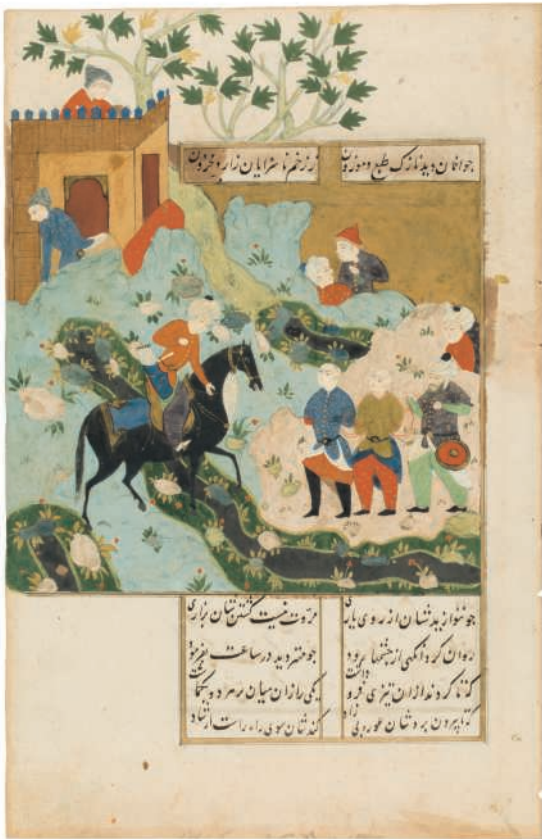 جوانان دید نازک طبع و موزون ز زخم ناسزایان زار و محزون
دیدشان از روی یاری مروت نیست کشتن شان بزاری
روان کرد آنگهی از رود جو مهتر دید در ساعت بفرمود
که تا کردند ازان تیزی فرو داشت یکی را زان میان بر مرد و بگماشت
که تا بیرون بردشان عور بی زاد کندشان سوی راه راست ارشاد